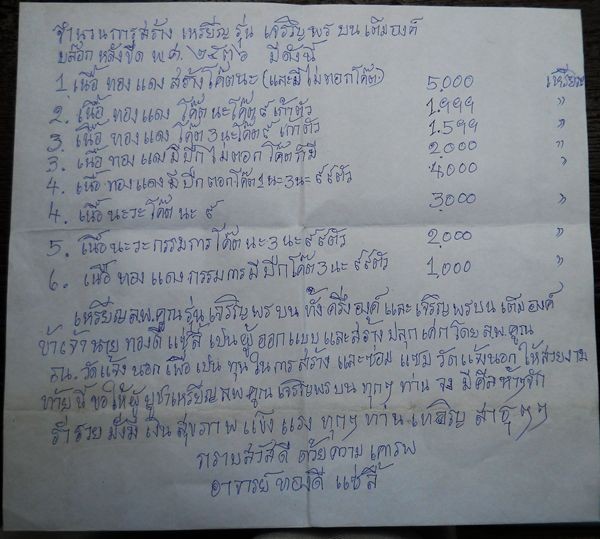 จำนวนการสร้าง เหรียญ รุ่น เจริญพร บน เต็มองค์
บล๊อก หลังขีด พ.ศ. ๒๕๓๖ มีดังนี้
1. เนื้อ ทองแดง สร้างโค๊ตนะ (และมีไม่ตอกโค๊ต) 5,000 เหรียญ
2. เนื้อ ทองแดง โค๊ตนะโค๊ต๙ เก้าตัว 1,999 "
3. เนื้อ ทองแดง โค๊ต 3 นะโค๊ต๙ เก้าตัว 1,599 "
3. เนื้อ ทองแดงมีปีก ไม่ตอก โค๊ตก็มี 2,000 "
4. เนื้อ ทองแดงมีปีกตอกโค๊ต1นะ3นะ ๙ ๙ตัว 4,000
4. เนื้อ นะวะโค๊ต นะ ๙ 3,000 "
5. เนื้อนะวะกรรมการโค๊ต นะ 3 นะ ๙ ๙ตัว 2,000 "
6. เนื้อ ทองแดง กรรมการมีปีกโค๊ต 3 นะ ๙ ๙ตัว 1,000 "
เหรียญ ลพ.คูณ รุ่น เจริญพร บน ทั้ง ครึ่งองค์ และ เจริญพรบน เต็มองค์
ข้าเจ้านาย ทองดี แซ่ลี้ เป็นผู้ ออกแบบ และสร้าง ปลุกเศกโดย ลพ.คูณ
ณ. วัดแจ้งนอก เพื่อ เป็น ทุน ในการ สร้าง และซ่อม แซม วัดแจ้งนอก ให้สวยงาม
ท้ายนี้ ขอให้ผู้ บูชาเหรียญ ลพ.คูณ เจริญพรบน ทุกๆ ท่าน จง มีศีลห้า
ร่ำรวย มั่งมี เงิน สุขภาพ แข็ง แรง ทุกๆ ท่าน เทอญ สาธุ ๆๆ
กราบสวัสดี ด้วยความ เคารพ
อาจารย์ ทองดี แซ่ลี้